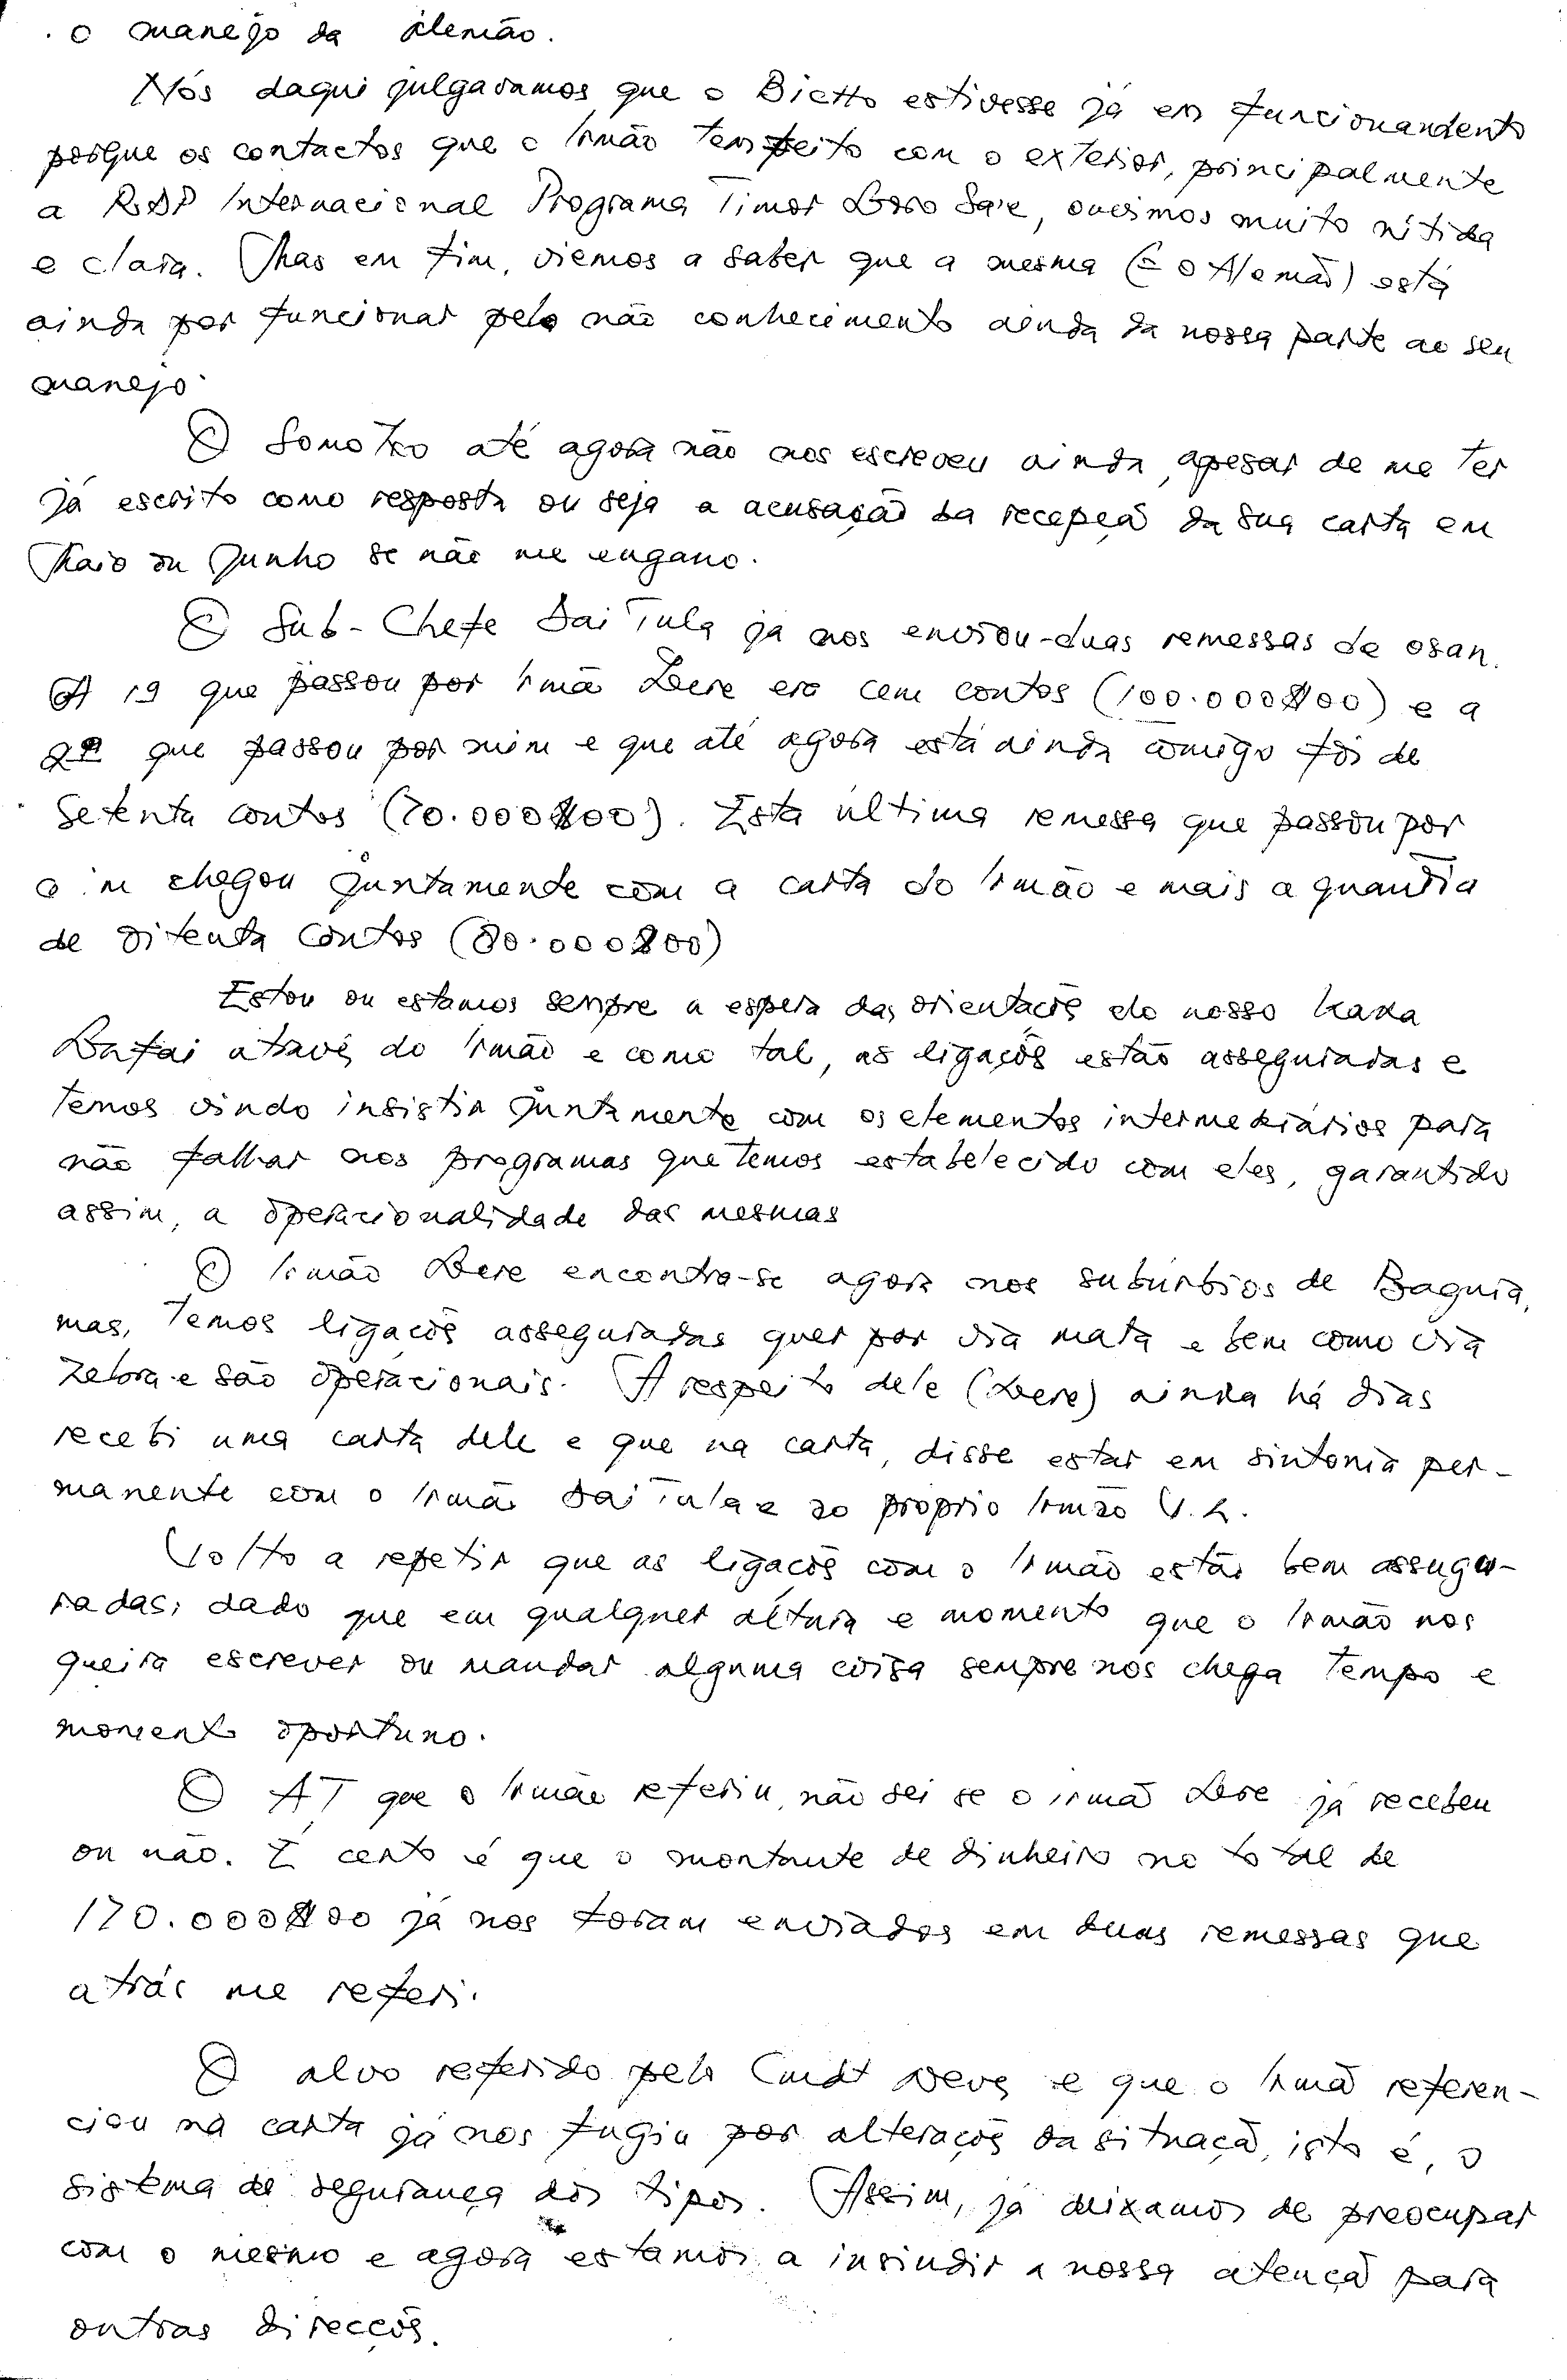 o manejo da alemão.
Nós daqui julgavamos que o Bietto estivesse já em funcionandento
porque os contactos que o Irmão tem feito com o exterior, principalmente
a RDP Internacional Programa Timor Loro Sa'e, ouvimos muito nitida
e clara. Mas em fim, viemos a saber que a mesma (= o Alemão) está
ainda por funcionar pelo não conhecimento ainda da nossa parte ao seu
manejo.
O Somotxo até agora não nos escreveu ainda, apesar de me ter
já escrito como resposta ou seja a acusação da recepçã da sua carta em
Maio ou Junho se não me engano.
O Sub-Chefe Dai Tula já nos enviou-duas remessas de osan.
A 1ª que passou por Irmã Lere era cem contos (100.000$00) e a
2ª que passou por mim e que até agora está ainda comigo foi de
Setenta contos (70.000$00). Esta última remessa que passou por
mim chegou juntamente com a carta do Irmão e mais a quantia
de oitenta contos (80.000$00)
Estou ou estamos sempre a espera das orientacõs do nosso Kaka
Bafai através do Irmão e como tal, as ligaçõs estão asseguradas e
temos vindo insistir juntamente com os elementos intermediários para
não falhar nos programas que temos estabelecido com eles, garantido
assim, a operacionalidade das mesmas
O Irmão Lere encontra-se agora nos subúrbios de Baguia,
mas, temos ligacõs asseguradas quer por via mata e bem como via
Zebra e são operacionais. A respeito dele (Lere) ainda há dias
recebi uma carta dele e que na carta, disse estar em sintonia per-
manente com o Irmão Dai Tula e ao proprio Irmão U. L.
Volto a repetir que as ligacõs com o Irmão estão bem assugu-
radas; dado que em qualquer altura e momento que o Irmão nos
queira escrever ou mandar alguma coisa sempre nos chega tempo e
momento oportuno.
O AT que o Irmão referiu, não sei se o irmã Lere já recebeu
ou não. E certo é que o montante de dinheiro no total de
170.000$00 já nos foram enviados em duas remessas que
atrás me referi.
O alvo referido pelo Cmdt Deve e que o Irmã referen-
ciou na carta já nos fugiu por alteraçõs da situaçã, isto é, o
sistema de segurança dos tipos. Assim, já deixamos de preocupar
com o mesmo e agora estamos a insindir a nossa atençã para
outras direcçõs.